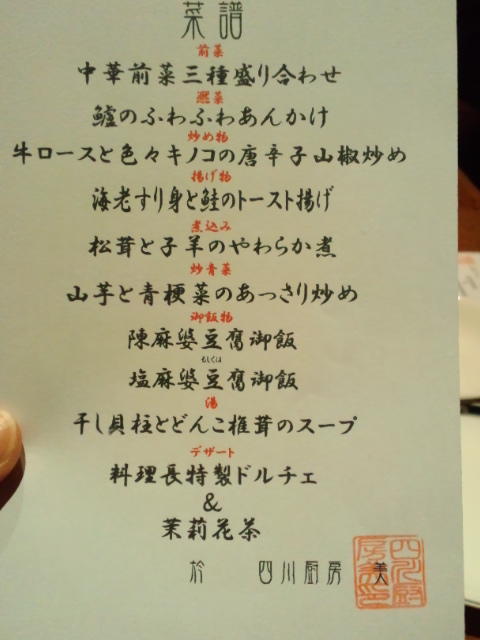 菜譜
前菜
中華前菜三種盛り合わせ
鱸のふわふわあんかけ
炒め物
牛ロースと色々キノコの唐辛子山椒炒め
揚げ物
海老すり身と鮭のトースト揚げ
煮込み
松茸と子羊のやわらか煮
炒青菜
山芋と青梗菜のあっさり炒め
御飯物
陳麻婆豆腐御飯
もしくは
塩麻婆豆腐御飯
湯
干し貝柱とどんこ椎茸のスープ
デザート
料理長特製ドルチェ
&
茉莉花茶
於 四川厨房 美人